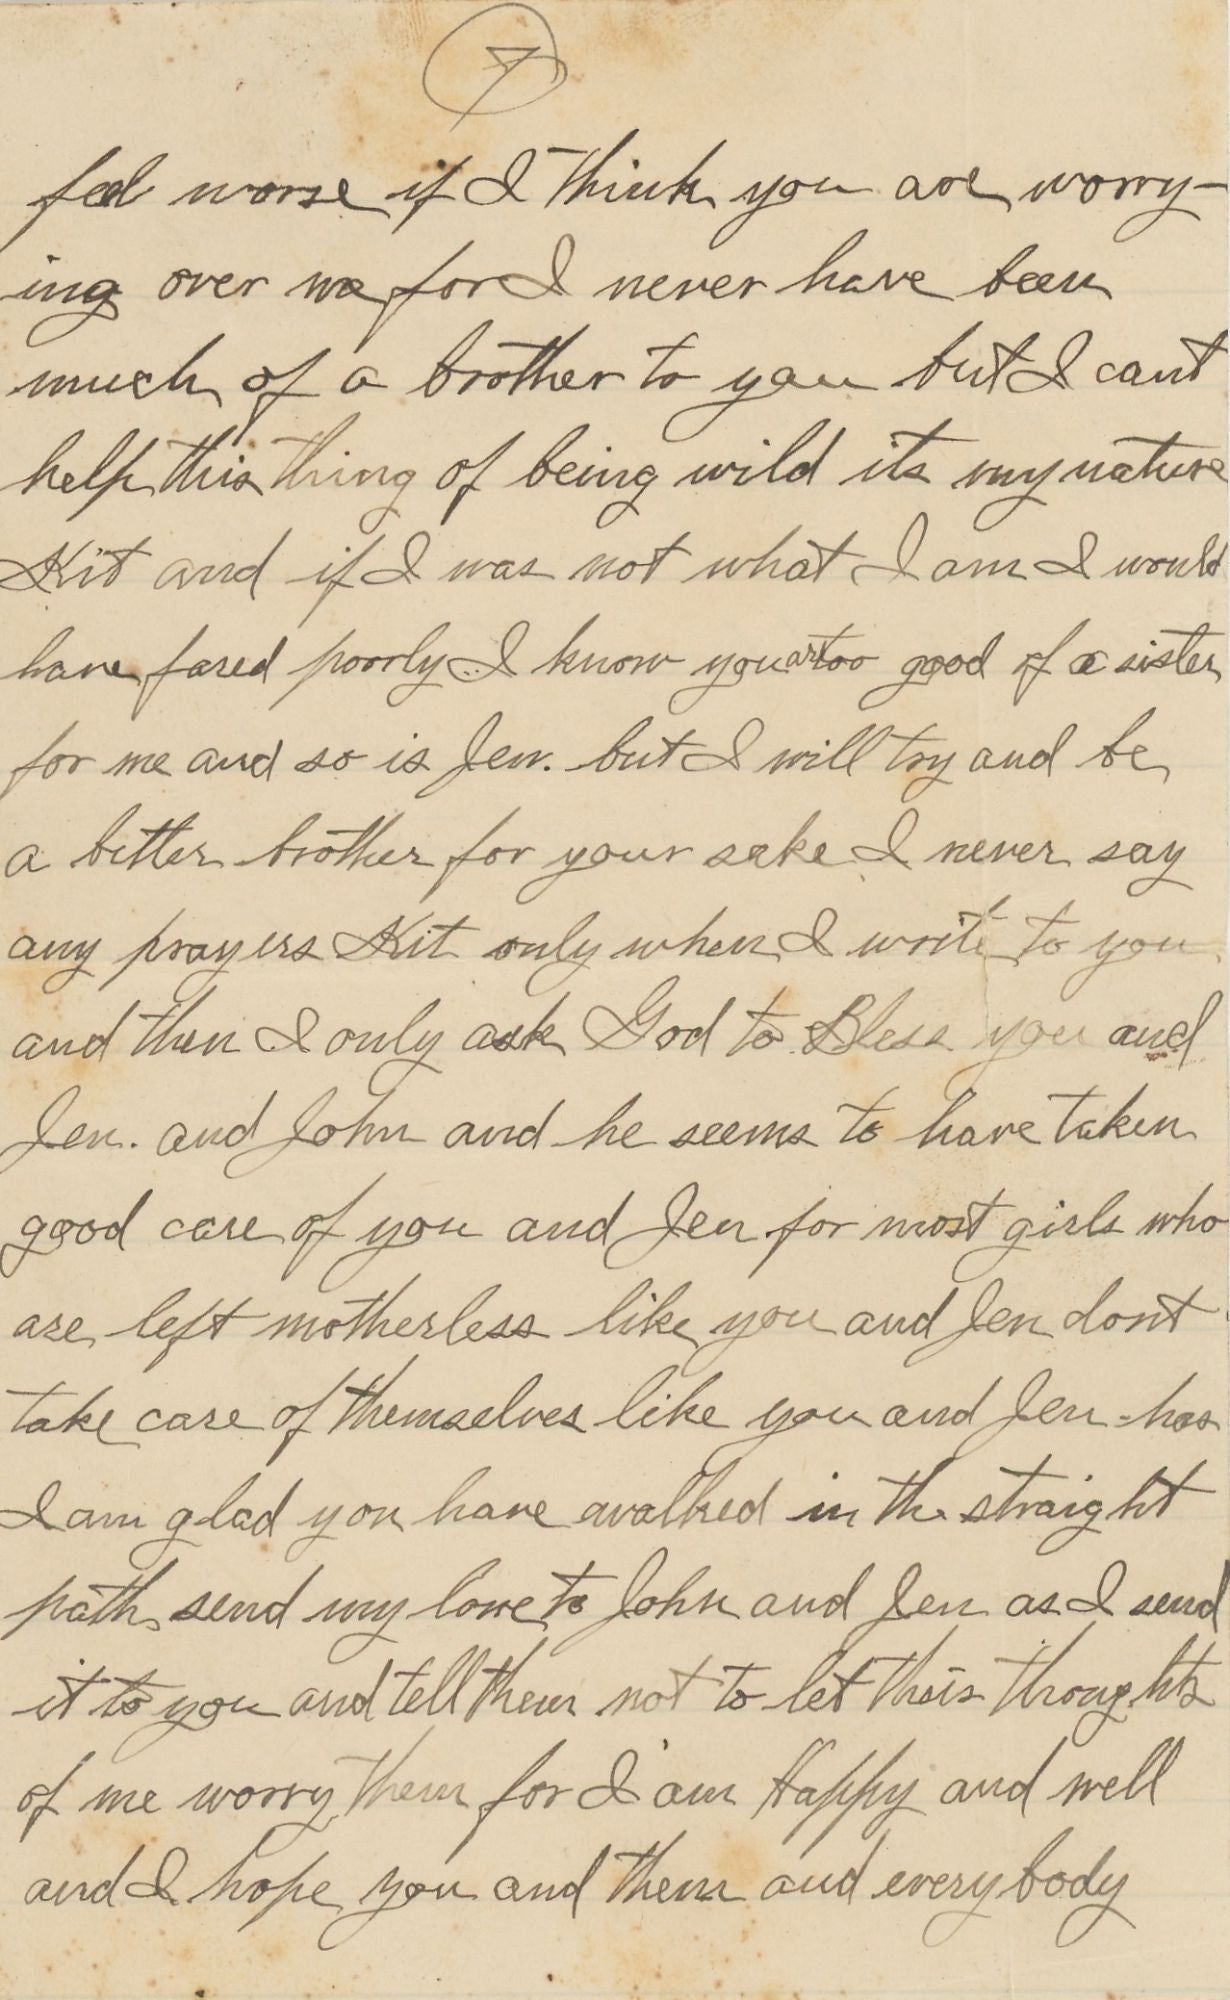 7
feel worse if I think you are worry-
ing over me for I never have been
much of a brother to you but I cant
help this thing of being wild its my nature
Kit and if I was not what I am I would
have fared poorly. I know you are too good of a sister
for me and so is Jen. but I will try and be
a better brother for your sake I never say
any prayers Kit only when I write to you
and then I only ask God to Bless you and
Jen. and John and he seems to have taken
good care of you and Jen for most girls who
are left motherless like you and Jen dont
take care of themselves like you and Jen - has
I am glad you have walked in the straight
path, send my love to John and Jen as I send
it to you and tell them not to let their thoughts
of me worry them for I am Happy and well
and I hope you and them and everybody